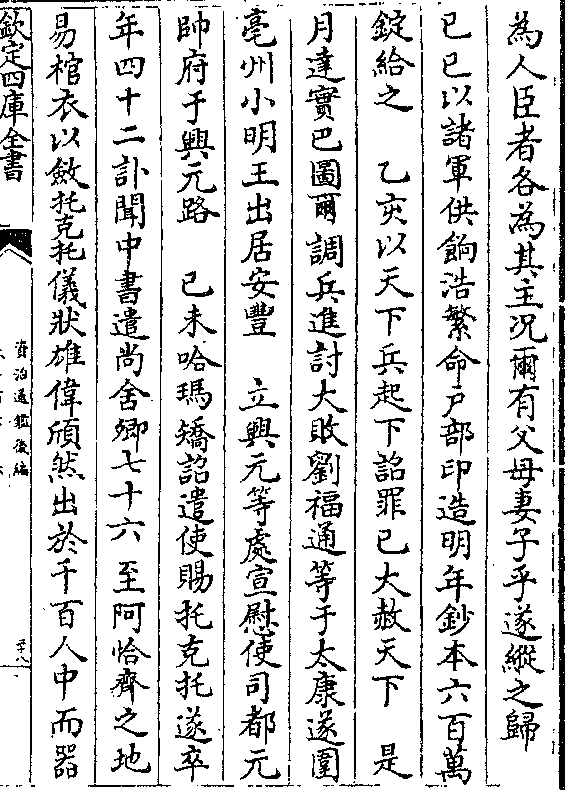 為人臣者各為其主况爾有父母妻子乎遂縱之歸
已巳以諸軍供餉浩繁命戸部印造明年鈔本六百萬
錠給之　乙亥以天下兵起下詔罪已大赦天下　是
月達實巴圖爾調兵進討大敗劉福通等于太康遂圍
亳州小明王出居安豐　立興元等處宣慰使司都元
帥府于興元路　已未哈瑪矯詔遣使賜托克托遂卒
年四十二訃聞中書遣尚舍卿七十六至阿恰齊之地
易棺衣以斂托克托儀狀雄偉頎然出於千百人中而器
欽定四庫全書
資治通鑑後編